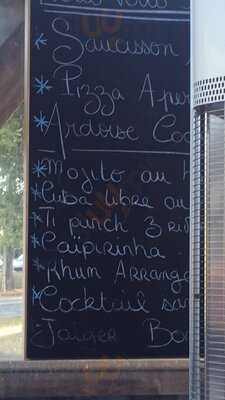 * Saucisson
* Pizza Aper
* Ardoise Coc
* Mojito au
* Cuba libre ou
* Ti punch 3
* Caïpirinha
* Rhum Arrangé
* Cocktail san
Jaiger Bo